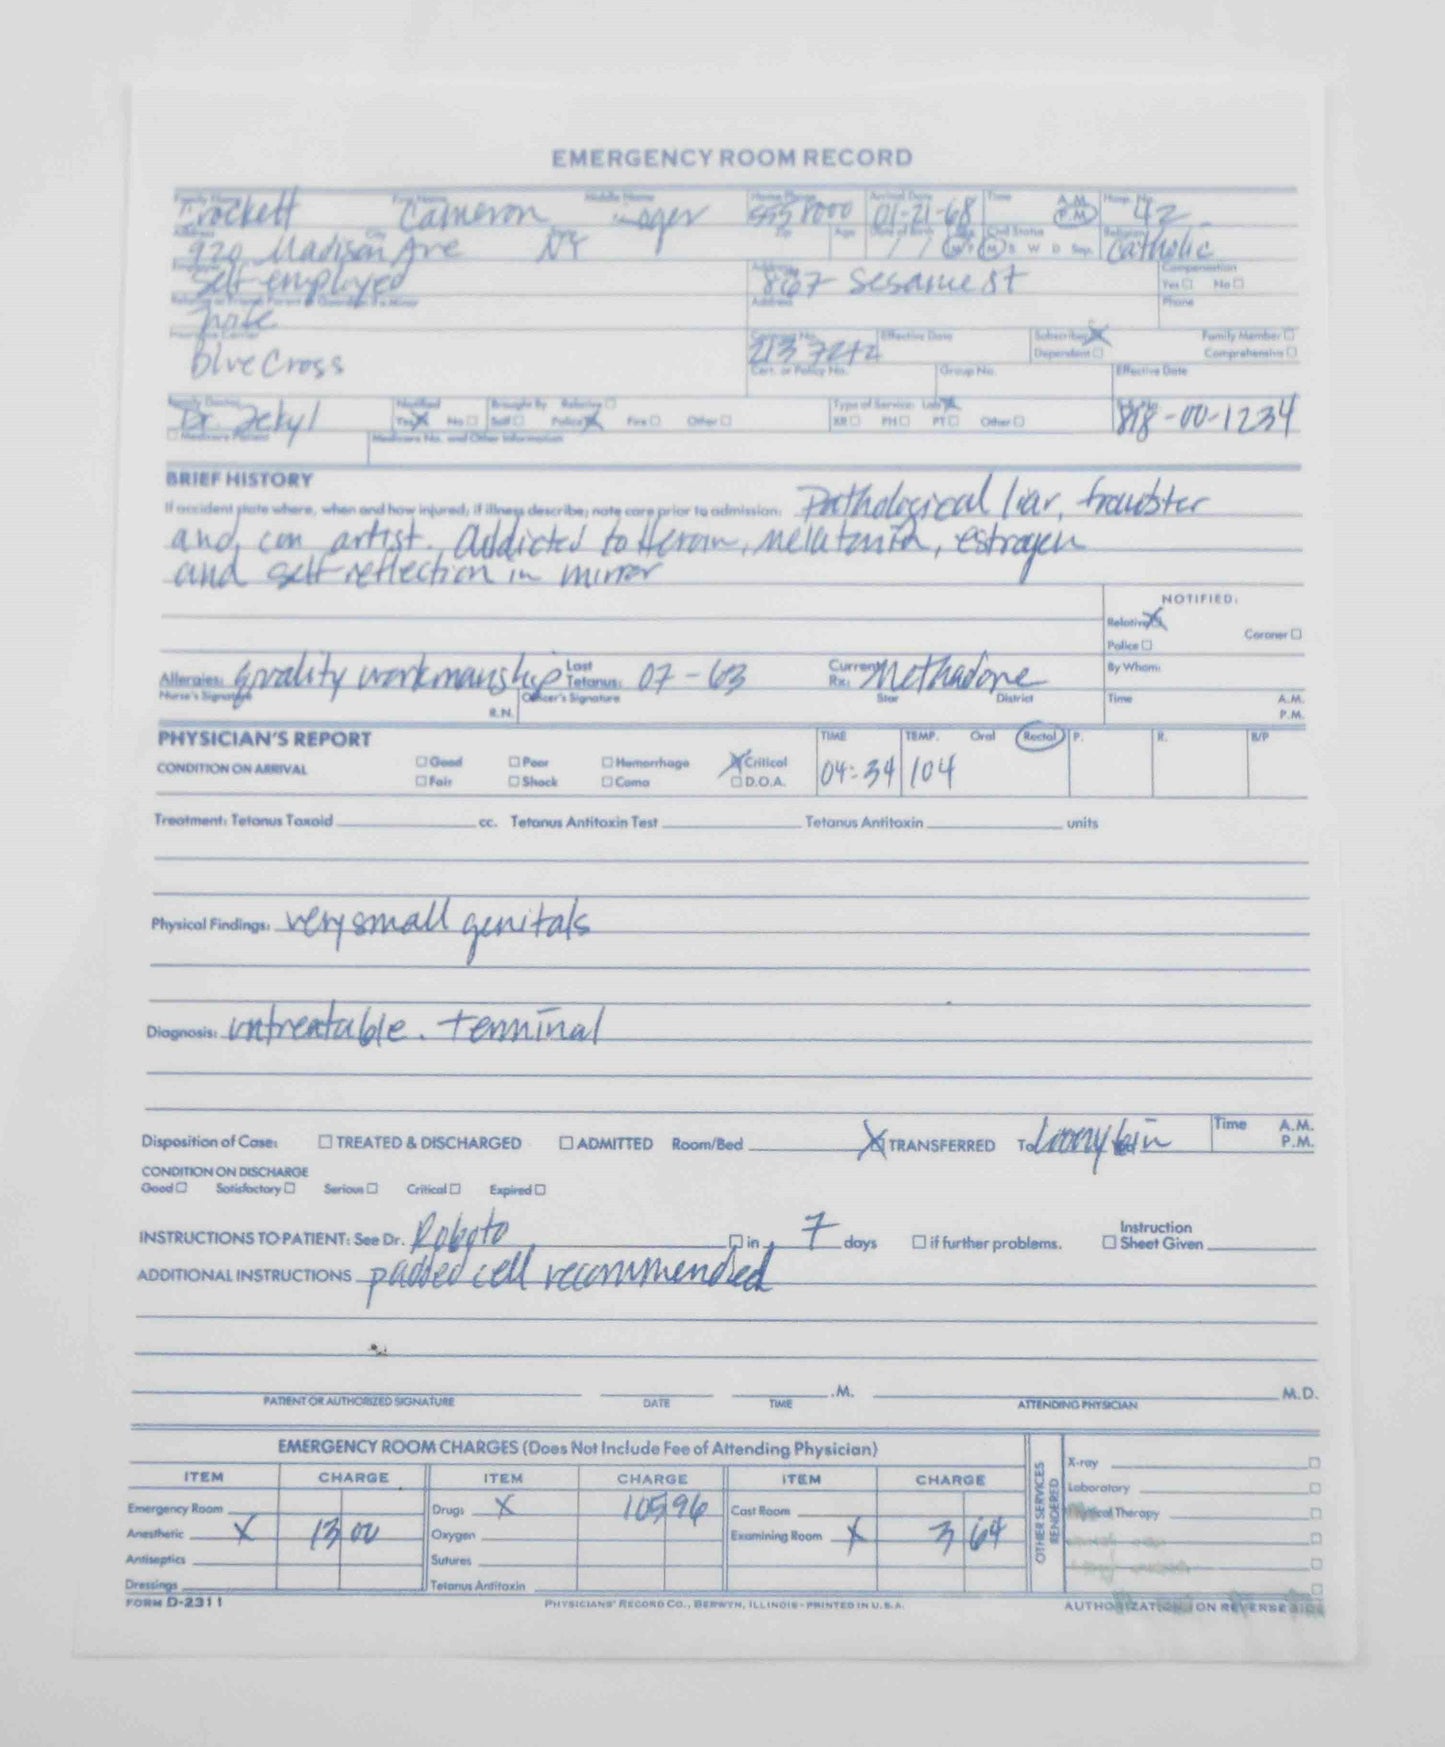 EMERGENCY ROOM RECORD
Family Name First Name Middle Name Home Phone Arrival Date Time A.M. Hosp. No.
Crockett Cameron 555 8000 01-21-68 P.M. 42
Address City Zip Age Date of Birth Sex Civil Status Religion
920 Madison Ave NY / / M F M S W D Sep. Catholic
Employer Address Compensation
Self-employed 867 Sesame St Yes☐ No☐
Relative or Friend, Parent or Guardian Address Phone
Insurance Carrier Effective Date Subscriber Family Member☐
Blue Cross 213 7272 Dependent☐ Comprehensive☐
Cert. or Policy No. Group No. Effective Date
Family Doctor Notified Brought By Relative☐ Type of Service: Lab
Dr. Jekyl Yes No☐ Self☐ Police Fire☐ Other☐ XR☐ PH☐ PT☐ Other☐ 818-00-1234
☐Medicare Patient Medicare No. and Other Information
BRIEF HISTORY
If accident state where, when and how injured; if illness describe; note care prior to admission: Pathological liar, fraudster
and con artist. Addicted to Heroin, melatonin, estrogen
and self-reflection in mirror
NOTIFIED:
Relative
Coroner☐
Police☐
Allergies: quality workmanship Last Tetanus: 07-63 Current Rx: Methadone By Whom:
Nurse's Signature R.N. Officer's Signature Star District Time A.M.
P.M.
PHYSICIAN'S REPORT TIME TEMP. Oral Rectal P. R. B/P
CONDITION ON ARRIVAL ☐Good ☐Poor ☐Hemorrhage Critical 04:34 104
☐Fair ☐Shock ☐Coma ☐D.O.A.
Treatment: Tetanus Toxoid cc. Tetanus Antitoxin Test Tetanus Antitoxin units
Physical Findings: very small genitals
Diagnosis: untreatable. terminal
Disposition of Case: ☐TREATED & DISCHARGED ☐ADMITTED Room/Bed TRANSFERRED To Loony bin Time A.M.
P.M.
CONDITION ON DISCHARGE
Good☐ Satisfactory☐ Serious☐ Critical☐ Expired☐
INSTRUCTIONS TO PATIENT: See Dr. Roboto ☐in 7 days ☐if further problems. ☐Instruction Sheet Given
ADDITIONAL INSTRUCTIONS padded cell recommended
.M. M.D.
PATIENT OR AUTHORIZED SIGNATURE DATE TIME ATTENDING PHYSICIAN
EMERGENCY ROOM CHARGES (Does Not Include Fee of Attending Physician)
ITEM CHARGE ITEM CHARGE ITEM CHARGE
Emergency Room Drugs X 105 96 Cast Room
Anesthetic X 13 00 Oxygen Examining Room X 3 64
Antiseptics Sutures
Dressings Tetanus Antitoxin
OTHER SERVICES RENDERED
X-ray ☐
Laboratory ☐
Physical Therapy ☐
FORM D-2311 PHYSICIANS' RECORD CO., BERWYN, ILLINOIS - PRINTED IN U.S.A. AUTHORIZATION ON REVERSE SIDE